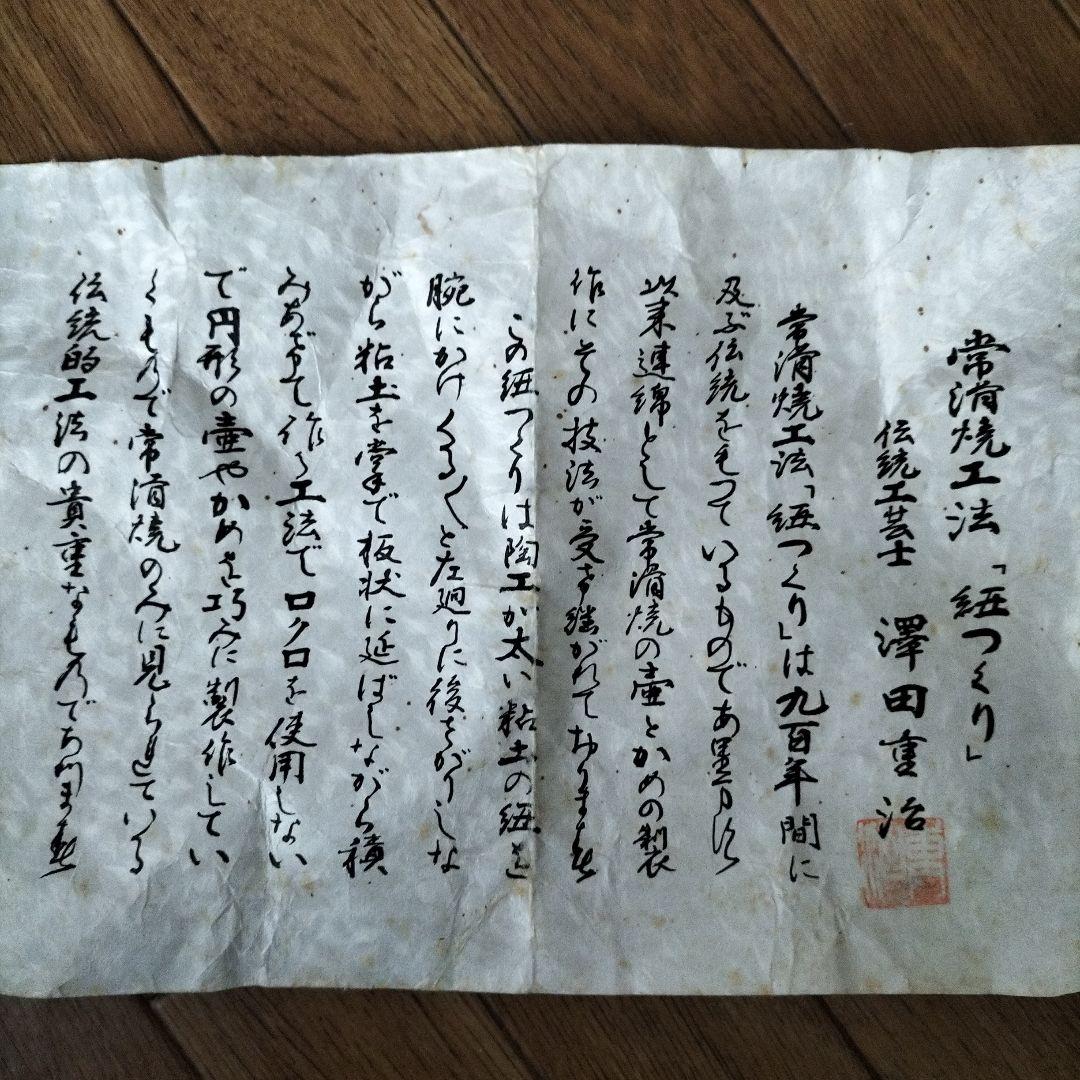 常滑焼工法「紐つくり」
伝統工芸士 澤田重治
常滑焼工法「紐つくり」は九百年間に
及ぶ伝統をもつているもので
以来連綿として常滑焼の壷とかめの製
作にその技法が受け継がれております
この紐つくりは陶工が太い粘土の紐を
腕にかけくるくると左廻りに後ずさりしな
がら粘土を掌で板状に延ばしながら積
みあげて作る工法でロクロを使用しない
で円形の壷やかめを巧みに製作してい
くもので常滑焼のみに見られている
伝統的工法の貴重なものであります